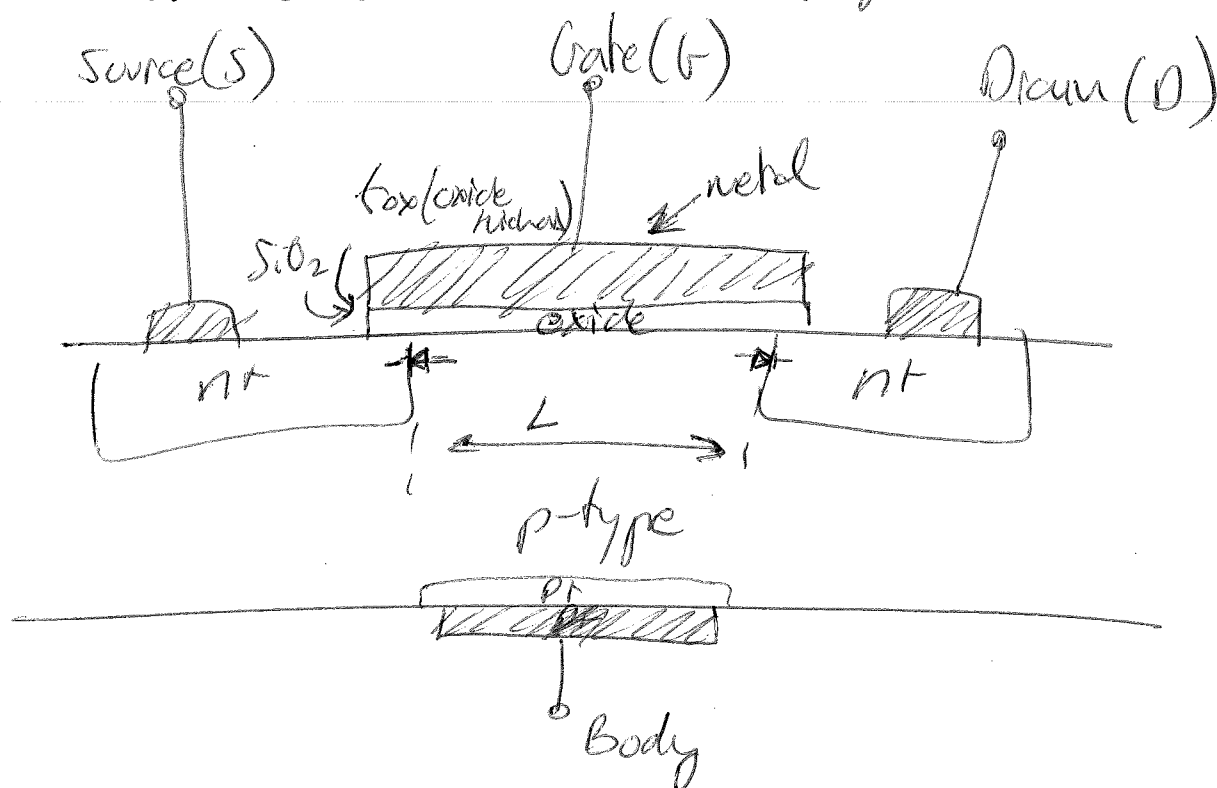 Source(S)
Gate(G)
Drain(D)
tox(oxide
metal
SiO2
oxide
n+
n+
L
p-type
p+
Body